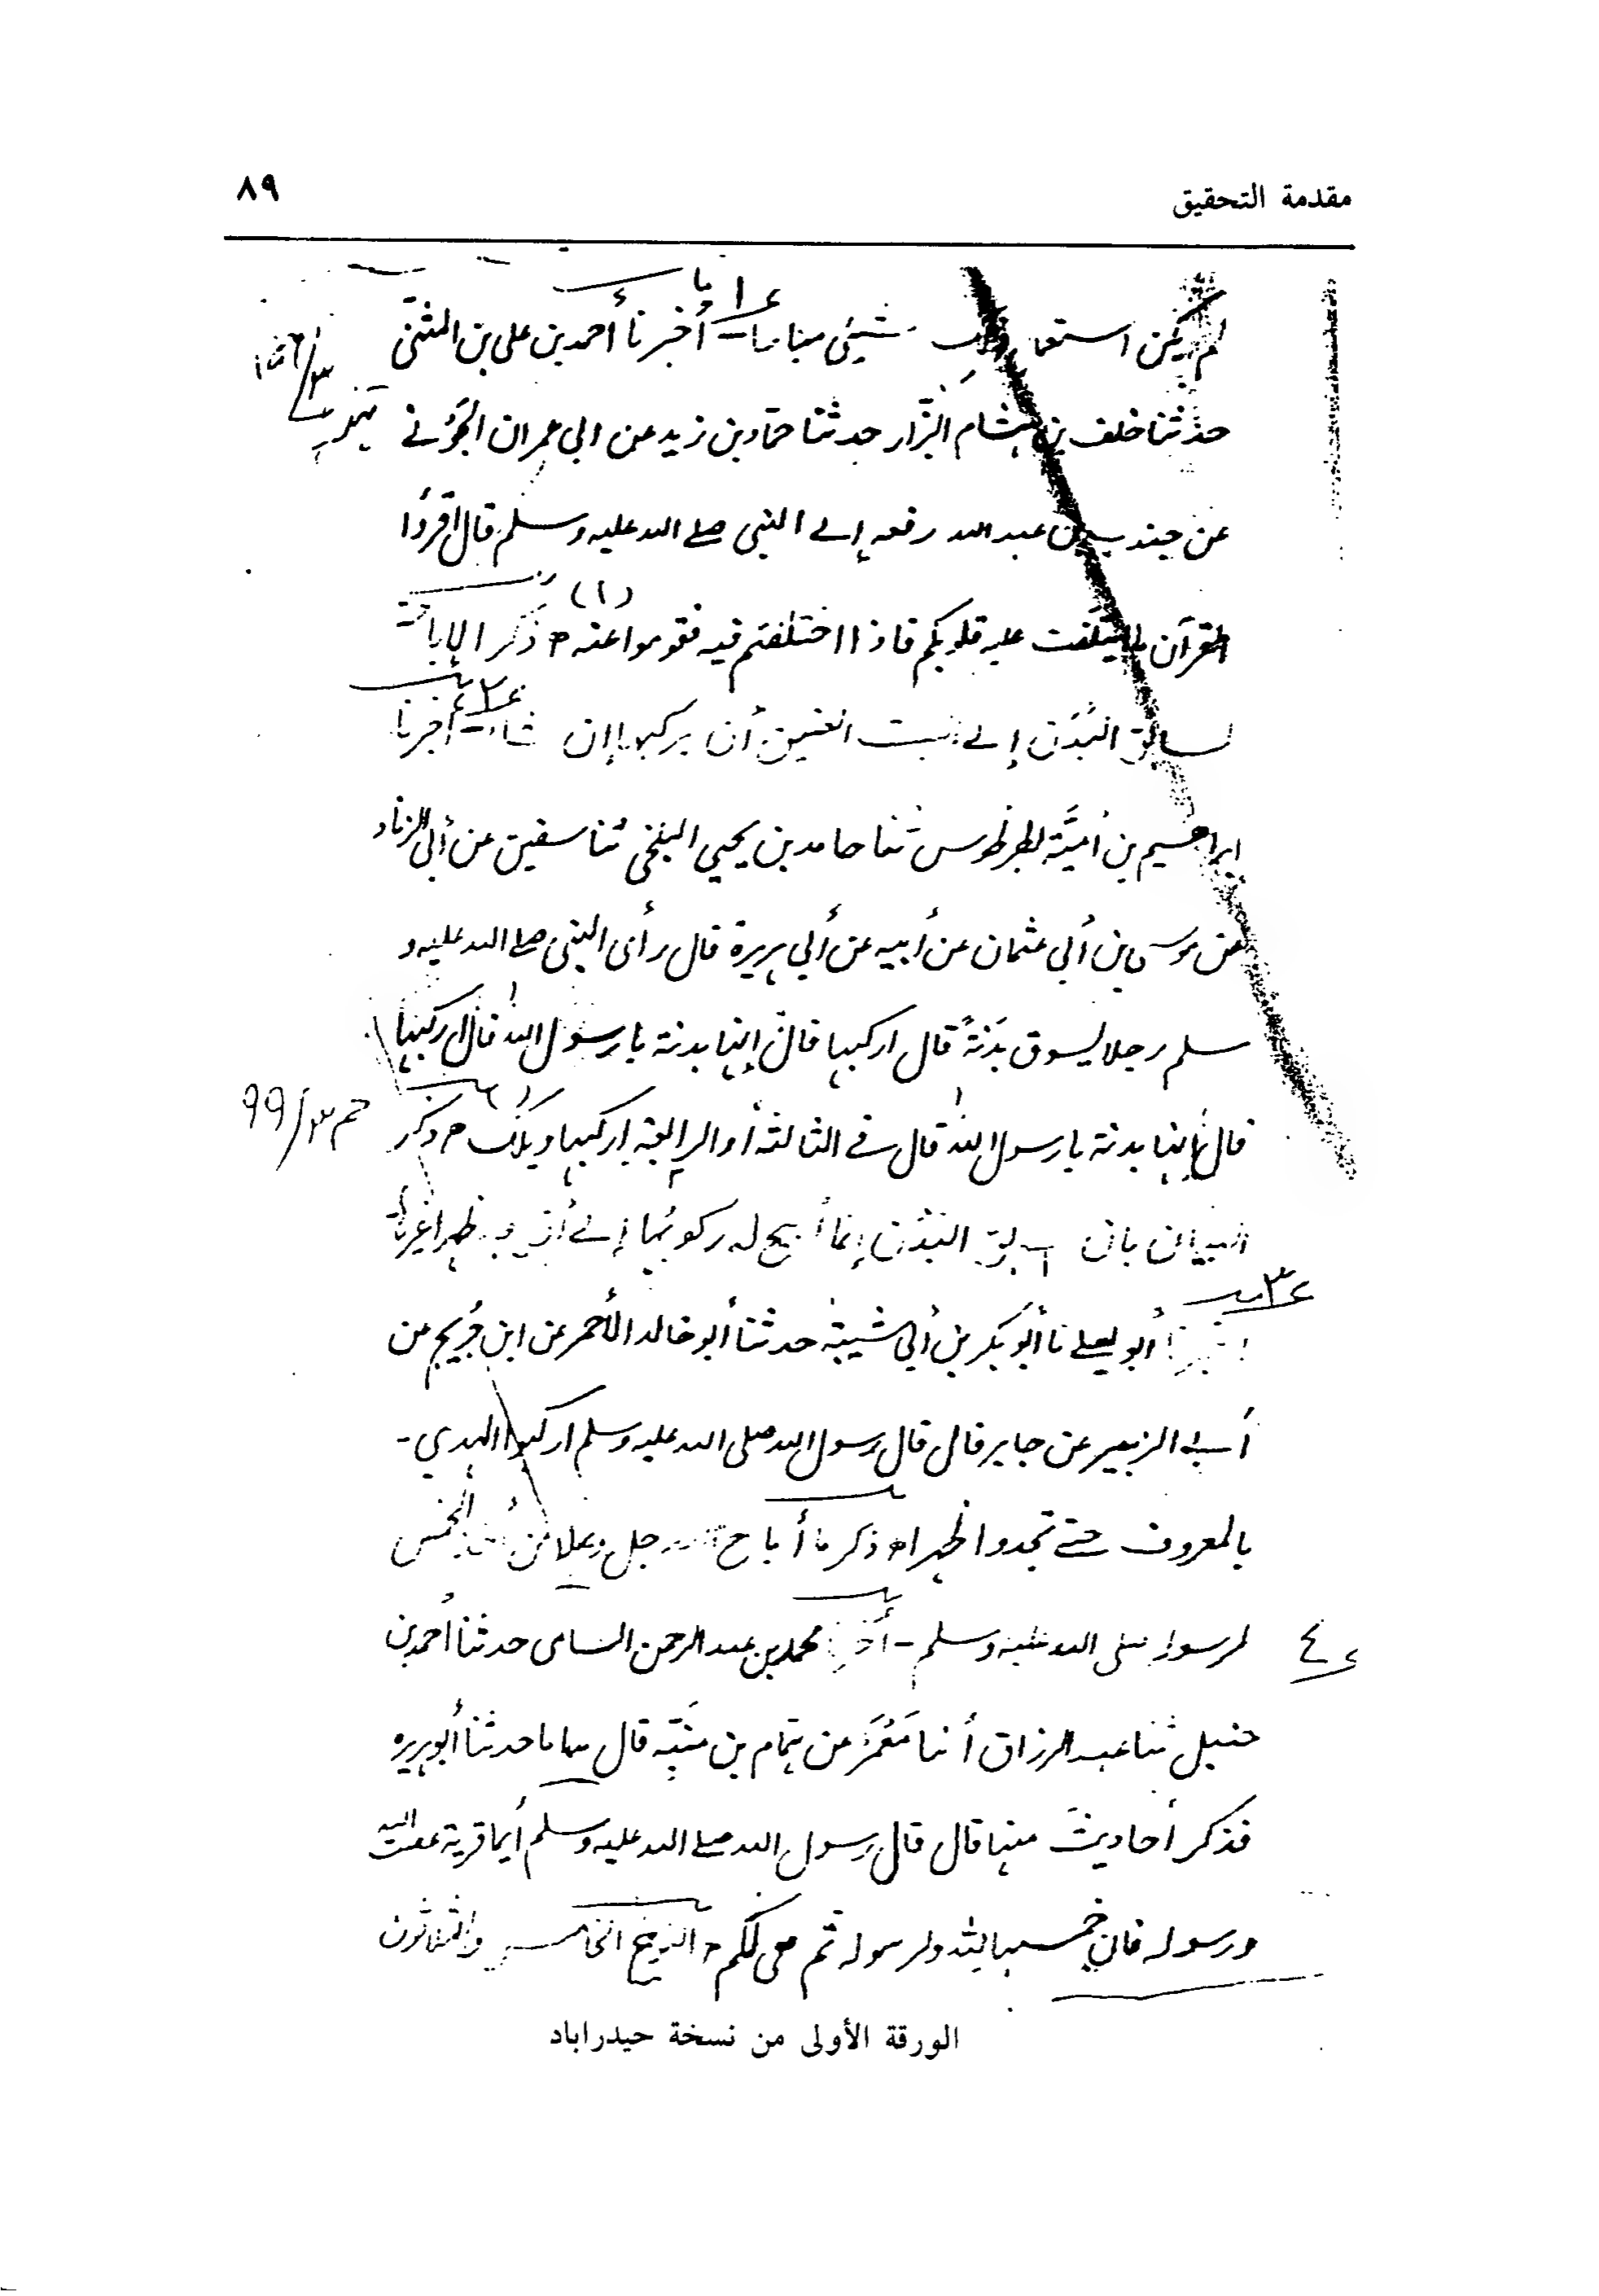 مقدمة التحقيق
٨٩
لم يكن استعما شيئي مباحا - أخبرنا أحمد بن علي بن المثنى
حدثنا خلف بن هشام البزار حدثنا حماد بن زيد عن ابي عمران الجوني
عن جندب بن عبد الله رفعه إلى النبي صلى الله عليه وسلم قال اقرؤا
(١)
القرآن ما ائتلفت عليه قلوبكم فاذا اختلفتم فيه فقوموا عنه ذكر الإباحة
لسائق البدن إلى البيت العتيق أن يركبها إن شاء - أخبرنا
ابراهيم بن أمية بطرطوس ثنا حامد بن يحيى البلخي ثنا سفين عن أبي الزناد
عن موسى بن أبي عثمان عن أبيه عن أبي هريرة قال رأى النبي صلى الله عليه و
سلم رجلا يسوق بدنة قال اركبها قال إنها بدنة يا رسول الله قال اركبها
قال إنها بدنة يا رسول الله قال في الثالثة أو الرابعة اركبها ويلك ذكر
حم ٣/٩٩
البيان بان سائق البدن إنما أبيح له ركوبها إلى أن يجد ظهرا غيرها
ع ٣
أخبرنا أبو يعلى نا أبو بكر بن أبي شيبة حدثنا أبو خالد الأحمر عن ابن جريج عن
أبي الزبير عن جابر قال قال رسول الله صلى الله عليه وسلم اركبوا الهدي -
بالمعروف حتى تجدوا ظهرا ذكر ما أباح الله جل وعلا من الخمس
ع ٤
لرسوله صلى الله عليه وسلم - أخبرنا محمد بن عبد الرحمن السامي حدثنا أحمد بن
حنبل ثنا عبد الرزاق أنا معمر عن همام بن منبه قال هذا ما حدثنا أبو هريره
فذكر أحاديث منها قال قال رسول الله صلى الله عليه وسلم أيما قرية عصت الله
ورسوله فان خمسها لله ولرسوله ثم هي لكم النوع الخامس والثلاثون
الورقة الأولى من نسخة حيدراباد